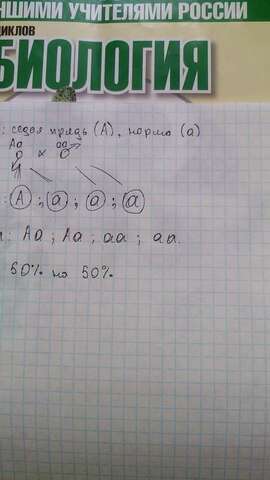 НШИМИ УЧИТЕЛЯМИ РОССИИ
ЦИКЛОВ
БИОЛОГИЯ
: седая прядь (А), норма (а)
Аа аа
♀ х ♂
: А ; а ; а ; а
: Аа ; Аа ; аа ; аа.
50% на 50%